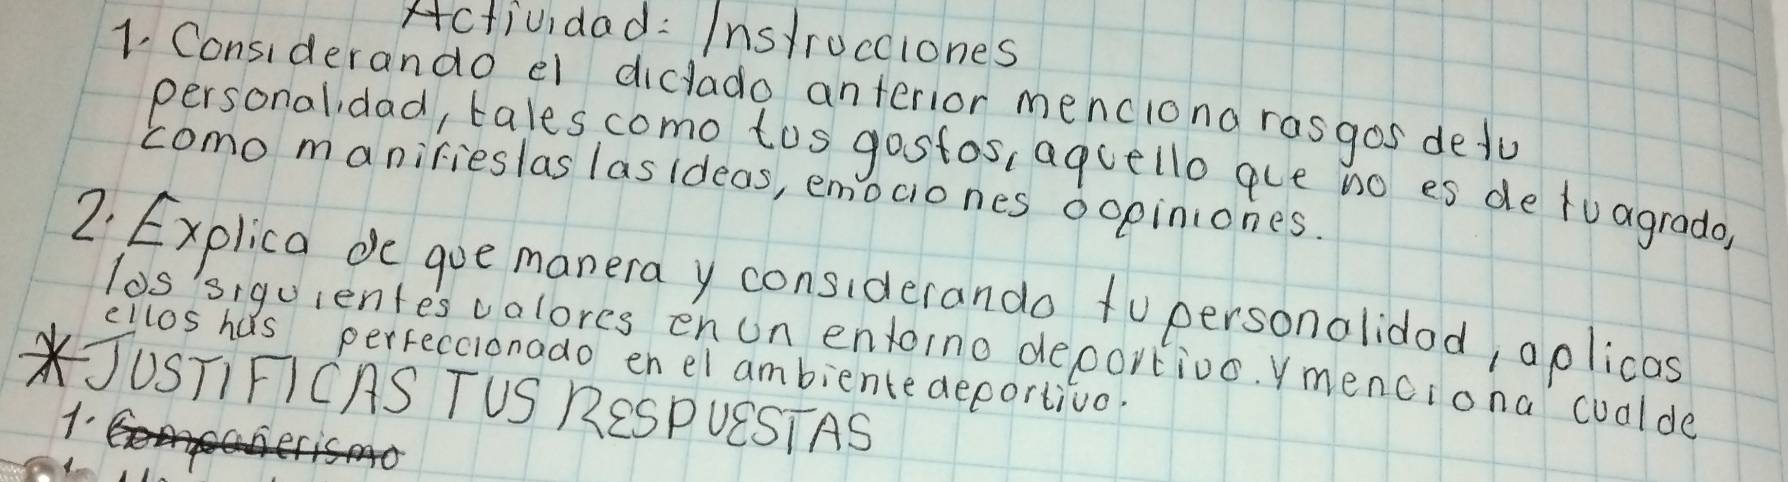 Actividad: Instrucciones
1. Considerando el dictado anterior menciona rasgos de tu
personalidad, tales como tus gostos, aquello que no es de tu agrado,
como manifiestas las ideas, emociones o opiniones.
2. Explica de que manera y considerando tu personalidad, aplicas
los siguientes valores en un entorno deportivo. Y menciona cual de
ellos has perfeccionado en el ambiente deportivo.
* JUSTIFICAS TUS RESPUESTAS
1. Compañerismo